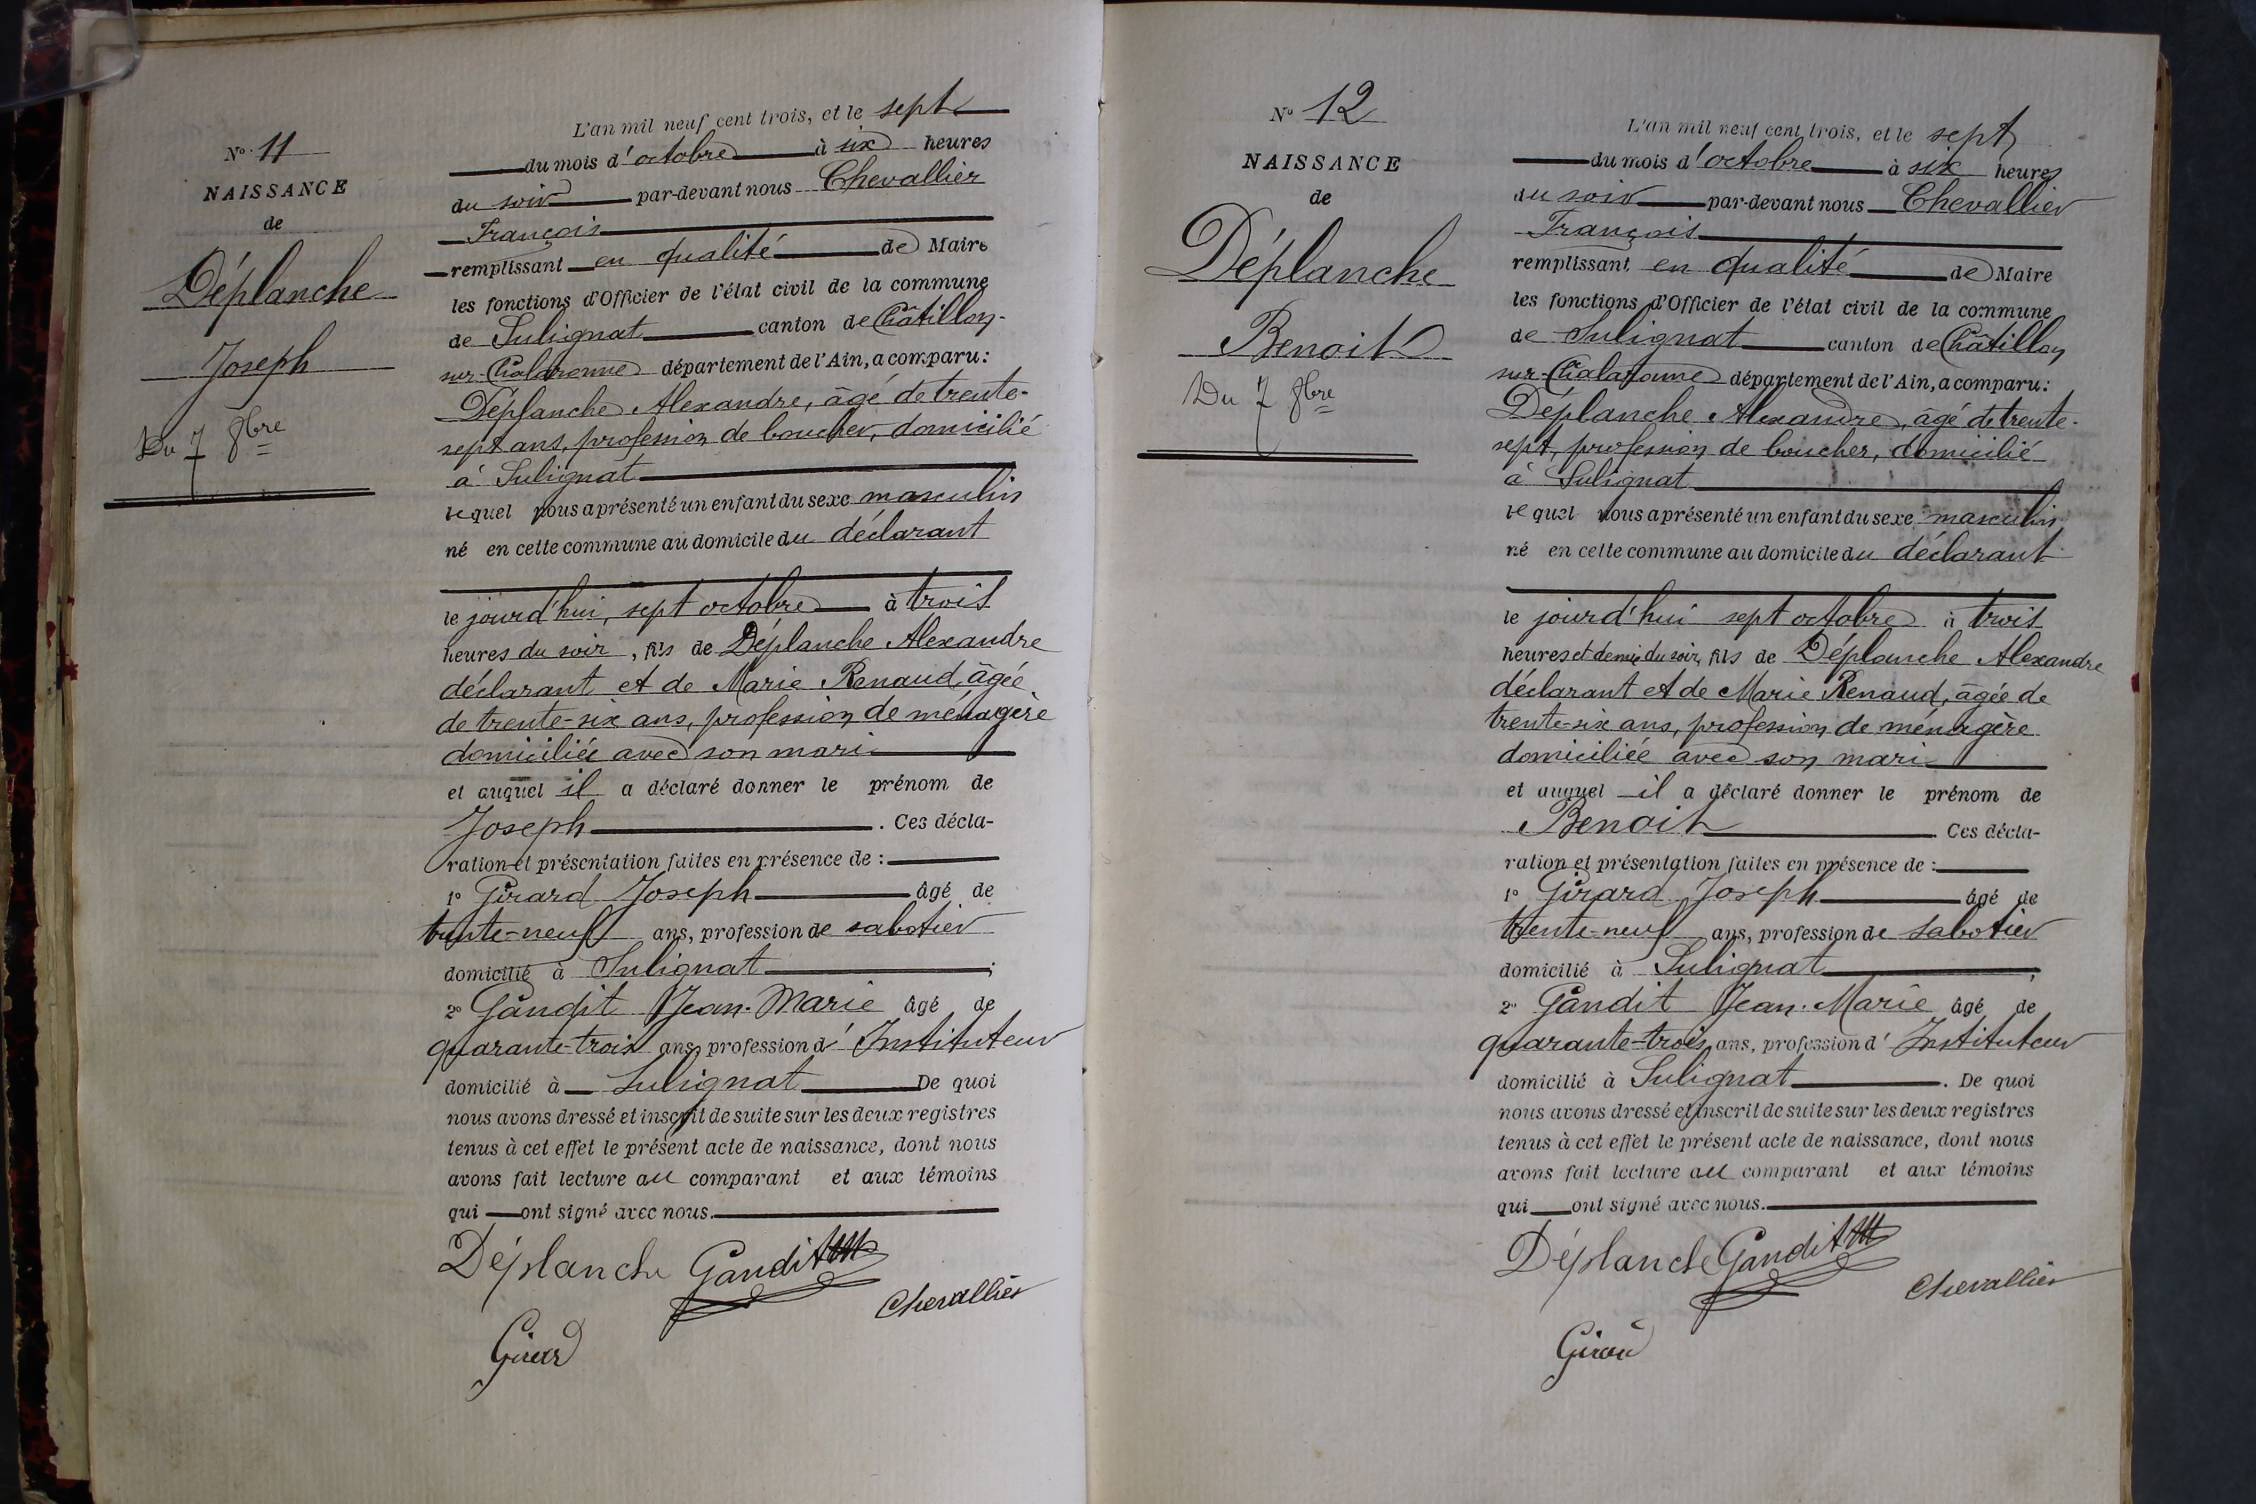 N° 11
NAISSANCE
de
Déplanche
Joseph
Du 7 8bre
L'an mil neuf cent trois, et le sept
du mois d'octobre à six heures
du soir par-devant nous Chevallier
François
remplissant en qualité de Maire
les fonctions d'Officier de l'état civil de la commune
de Sulignat canton de Châtillon-
sur-Chalaronne département de l'Ain, a comparu:
Déplanche Alexandre, âgé de trente-
sept ans, profession de boucher, domicilié
à Sulignat
lequel nous a présenté un enfant du sexe masculin
né en cette commune au domicile du déclarant
le jourd'hui, sept octobre à trois
heures du soir, fils de Déplanche Alexandre
déclarant et de Marie Renaud, âgée
de trente-six ans, profession de ménagère
domiciliée avec son mari
et auquel il a déclaré donner le prénom de
Joseph. Ces décla-
ration et présentation faites en présence de :
1° Girard Joseph âgé de
trente-neuf ans, profession de sabotier
domicilié à Sulignat ;
2° Gandit Jean-Marie âgé de
quarante-trois ans, profession d'Instituteur
domicilié à Sulignat De quoi
nous avons dressé et inscrit de suite sur les deux registres
tenus à cet effet le présent acte de naissance, dont nous
avons fait lecture au comparant et aux témoins
qui ont signé avec nous.
Déplanche Gandit
Chevallier
Girard
N° 12
NAISSANCE
de
Déplanche
Benoit
Du 7 8bre
L'an mil neuf cent trois, et le sept
du mois d'octobre à six heures
du soir par-devant nous Chevallier
François
remplissant en qualité de Maire
les fonctions d'Officier de l'état civil de la commune
de Sulignat canton de Châtillon
sur-Chalaronne département de l'Ain, a comparu:
Déplanche Alexandre, âgé de trente-
sept, profession de boucher, domicilié
à Sulignat
lequel nous a présenté un enfant du sexe masculin
né en cette commune au domicile du déclarant
le jourd'hui sept octobre à trois
heures et demie du soir, fils de Déplanche Alexandre
déclarant et de Marie Renaud, âgée de
trente-six ans, profession de ménagère
domiciliée avec son mari
et auquel il a déclaré donner le prénom de
Benoit Ces décla-
ration et présentation faites en présence de :
1° Girard Joseph âgé de
trente-neuf ans, profession de sabotier
domicilié à Sulignat ;
2° Gandit Jean-Marie âgé de
quarante-trois ans, profession d'Instituteur
domicilié à Sulignat. De quoi
nous avons dressé et inscrit de suite sur les deux registres
tenus à cet effet le présent acte de naissance, dont nous
avons fait lecture au comparant et aux témoins
qui ont signé avec nous.
Déplanche Gandit
Chevallier
Girard